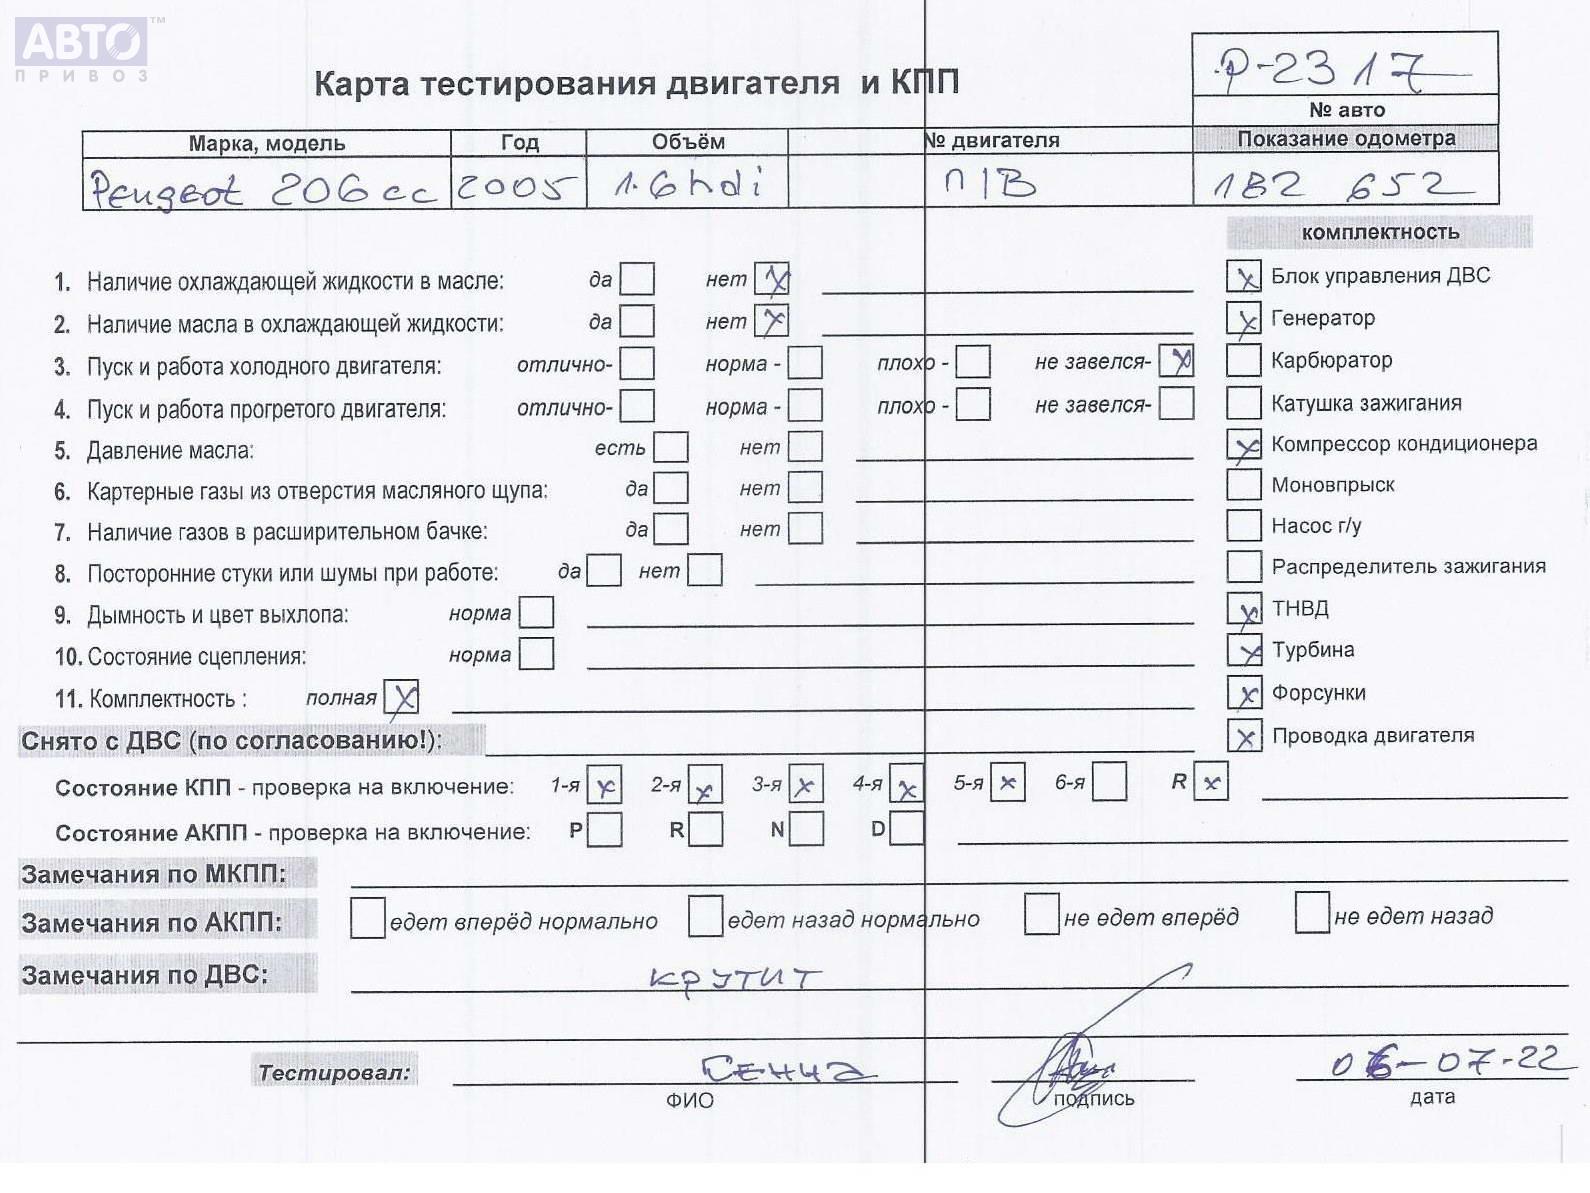 АВТО™
ПРИВОЗ
Карта тестирования двигателя и КПП
P-2317
№ авто
Марка, модель Год Объём № двигателя Показание одометра
Peugeot 206cc 2005 1.6hdi 182 652
комплектность
1. Наличие охлаждающей жидкости в масле: да нет x Блок управления ДВС x
2. Наличие масла в охлаждающей жидкости: да нет x Генератор x
3. Пуск и работа холодного двигателя: отлично- норма - плохо - не завелся- x Карбюратор
4. Пуск и работа прогретого двигателя: отлично- норма - плохо - не завелся- Катушка зажигания
5. Давление масла: есть нет x Компрессор кондиционера
6. Картерные газы из отверстия масляного щупа: да нет Моновпрыск
7. Наличие газов в расширительном бачке: да нет Насос г/у
8. Посторонние стуки или шумы при работе: да нет Распределитель зажигания
9. Дымность и цвет выхлопа: норма x ТНВД
10. Состояние сцепления: норма x Турбина
11. Комплектность : полная x x Форсунки
Снято с ДВС (по согласованию!): x Проводка двигателя
Состояние КПП - проверка на включение: 1-я x 2-я x 3-я x 4-я x 5-я x 6-я R x
Состояние АКПП - проверка на включение: P R N D
Замечания по МКПП:
Замечания по АКПП: едет вперёд нормально едет назад нормально не едет вперёд не едет назад
Замечания по ДВС: крутит
Тестировал: 06-07-22
ФИО подпись дата